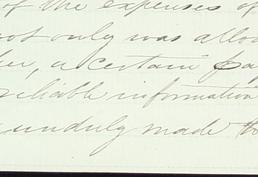 of the expenses of
not only was allo
er, a certain pay
reliable information
unduly made th